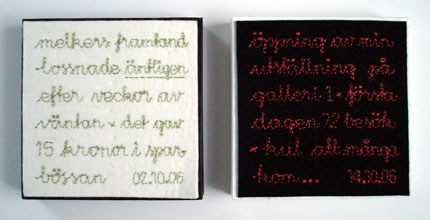 melkers framtand
lossnade äntligen
efter veckor av
väntan × det gav
15 kronor i spar-
bössan 02.10.06
öppning av min
utställning på
galleri 1 × första
dagen 72 besök
× kul att många
kom... 14.10.06